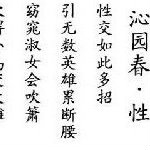 沁园春·性
性交如此多招
引无数英雄累断腰
窈窕淑女会吹箫